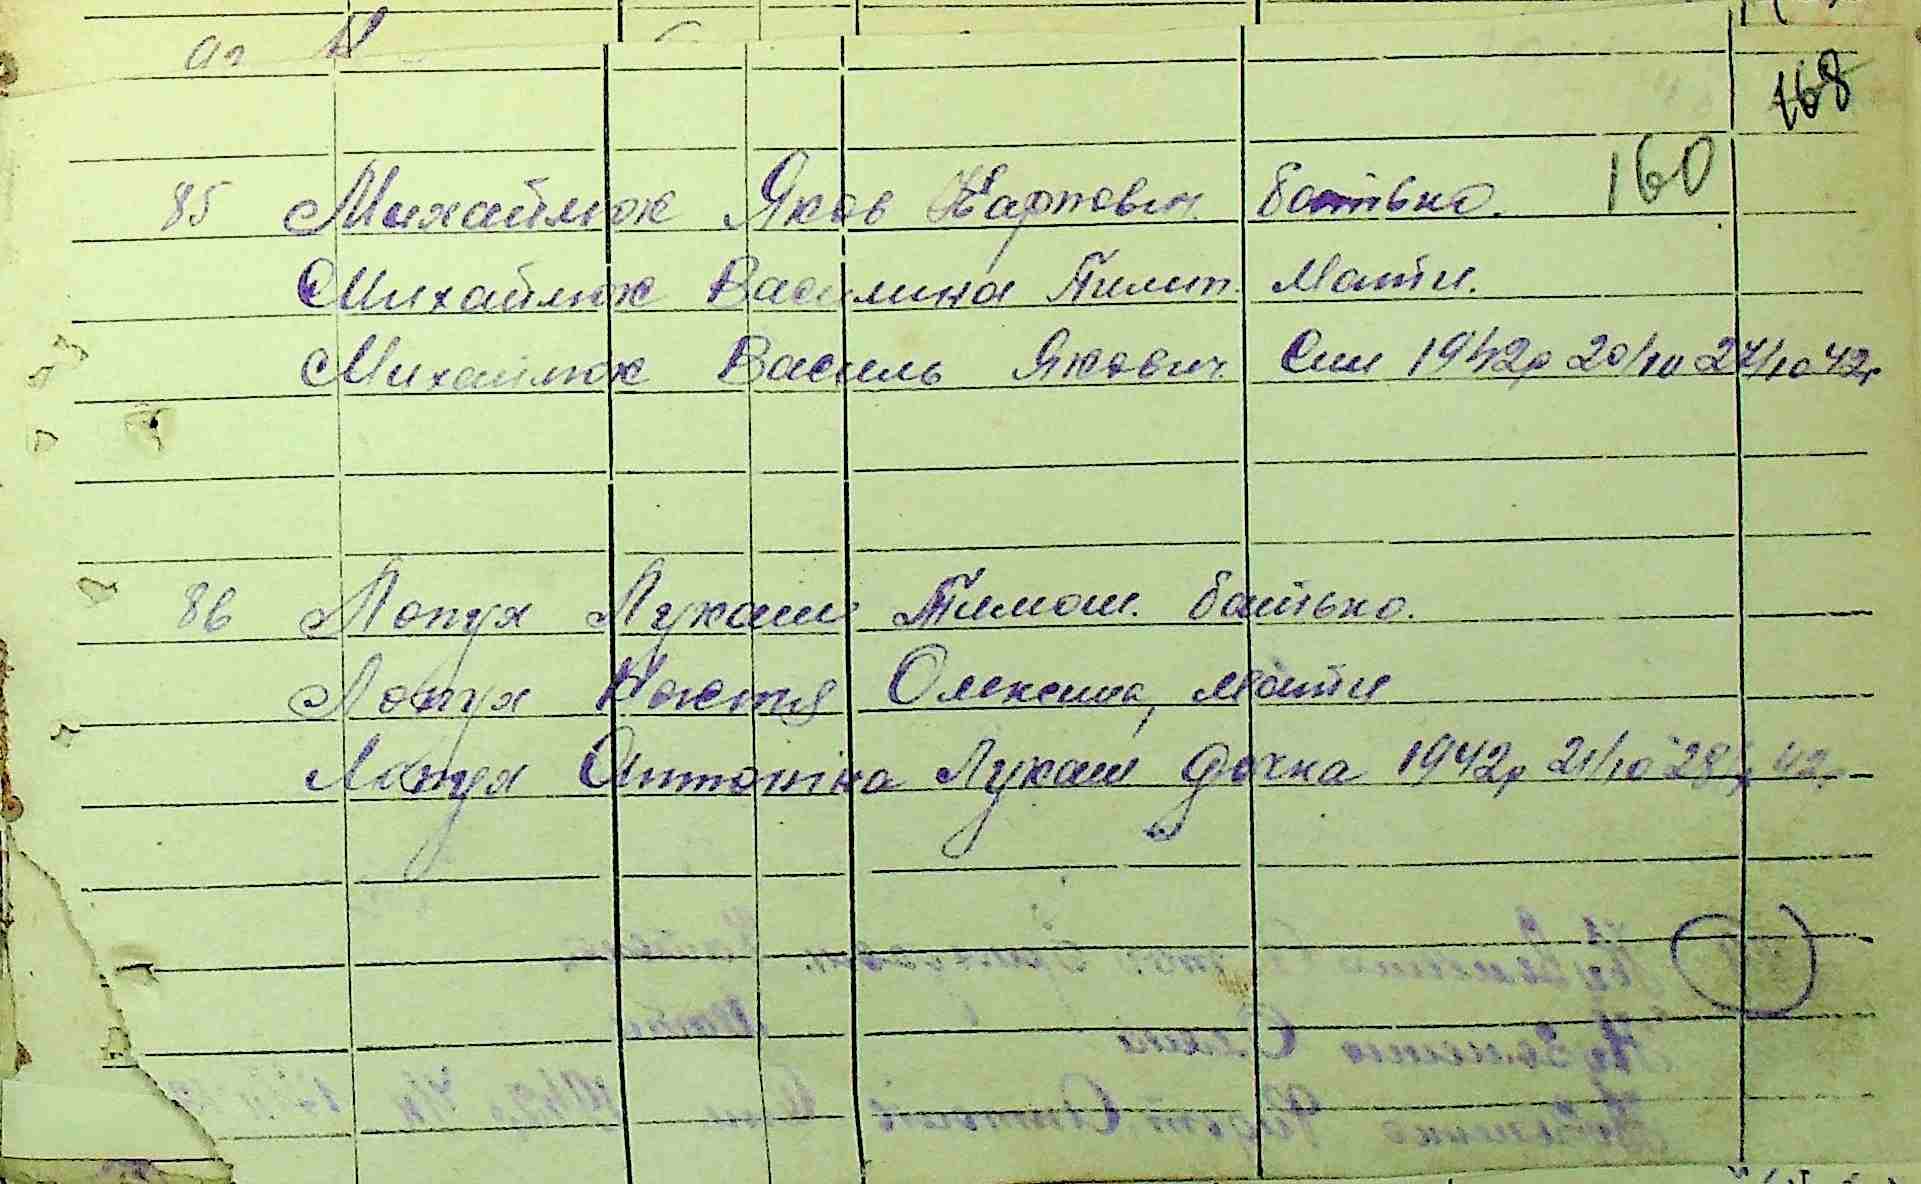 168
160
85 Михайлюк Яков Карпович батько.
Михайлюк Василина Пилип. Мати.
Михайлюк Василь Якович Син 1942р 20/10 27/10 42р
86 Лопух Лукаш Тимош. батько.
Лопух Настя Олексина, мати
Лопух Антоніна Лукаш дочка 1942р 21/10 28/X 42р